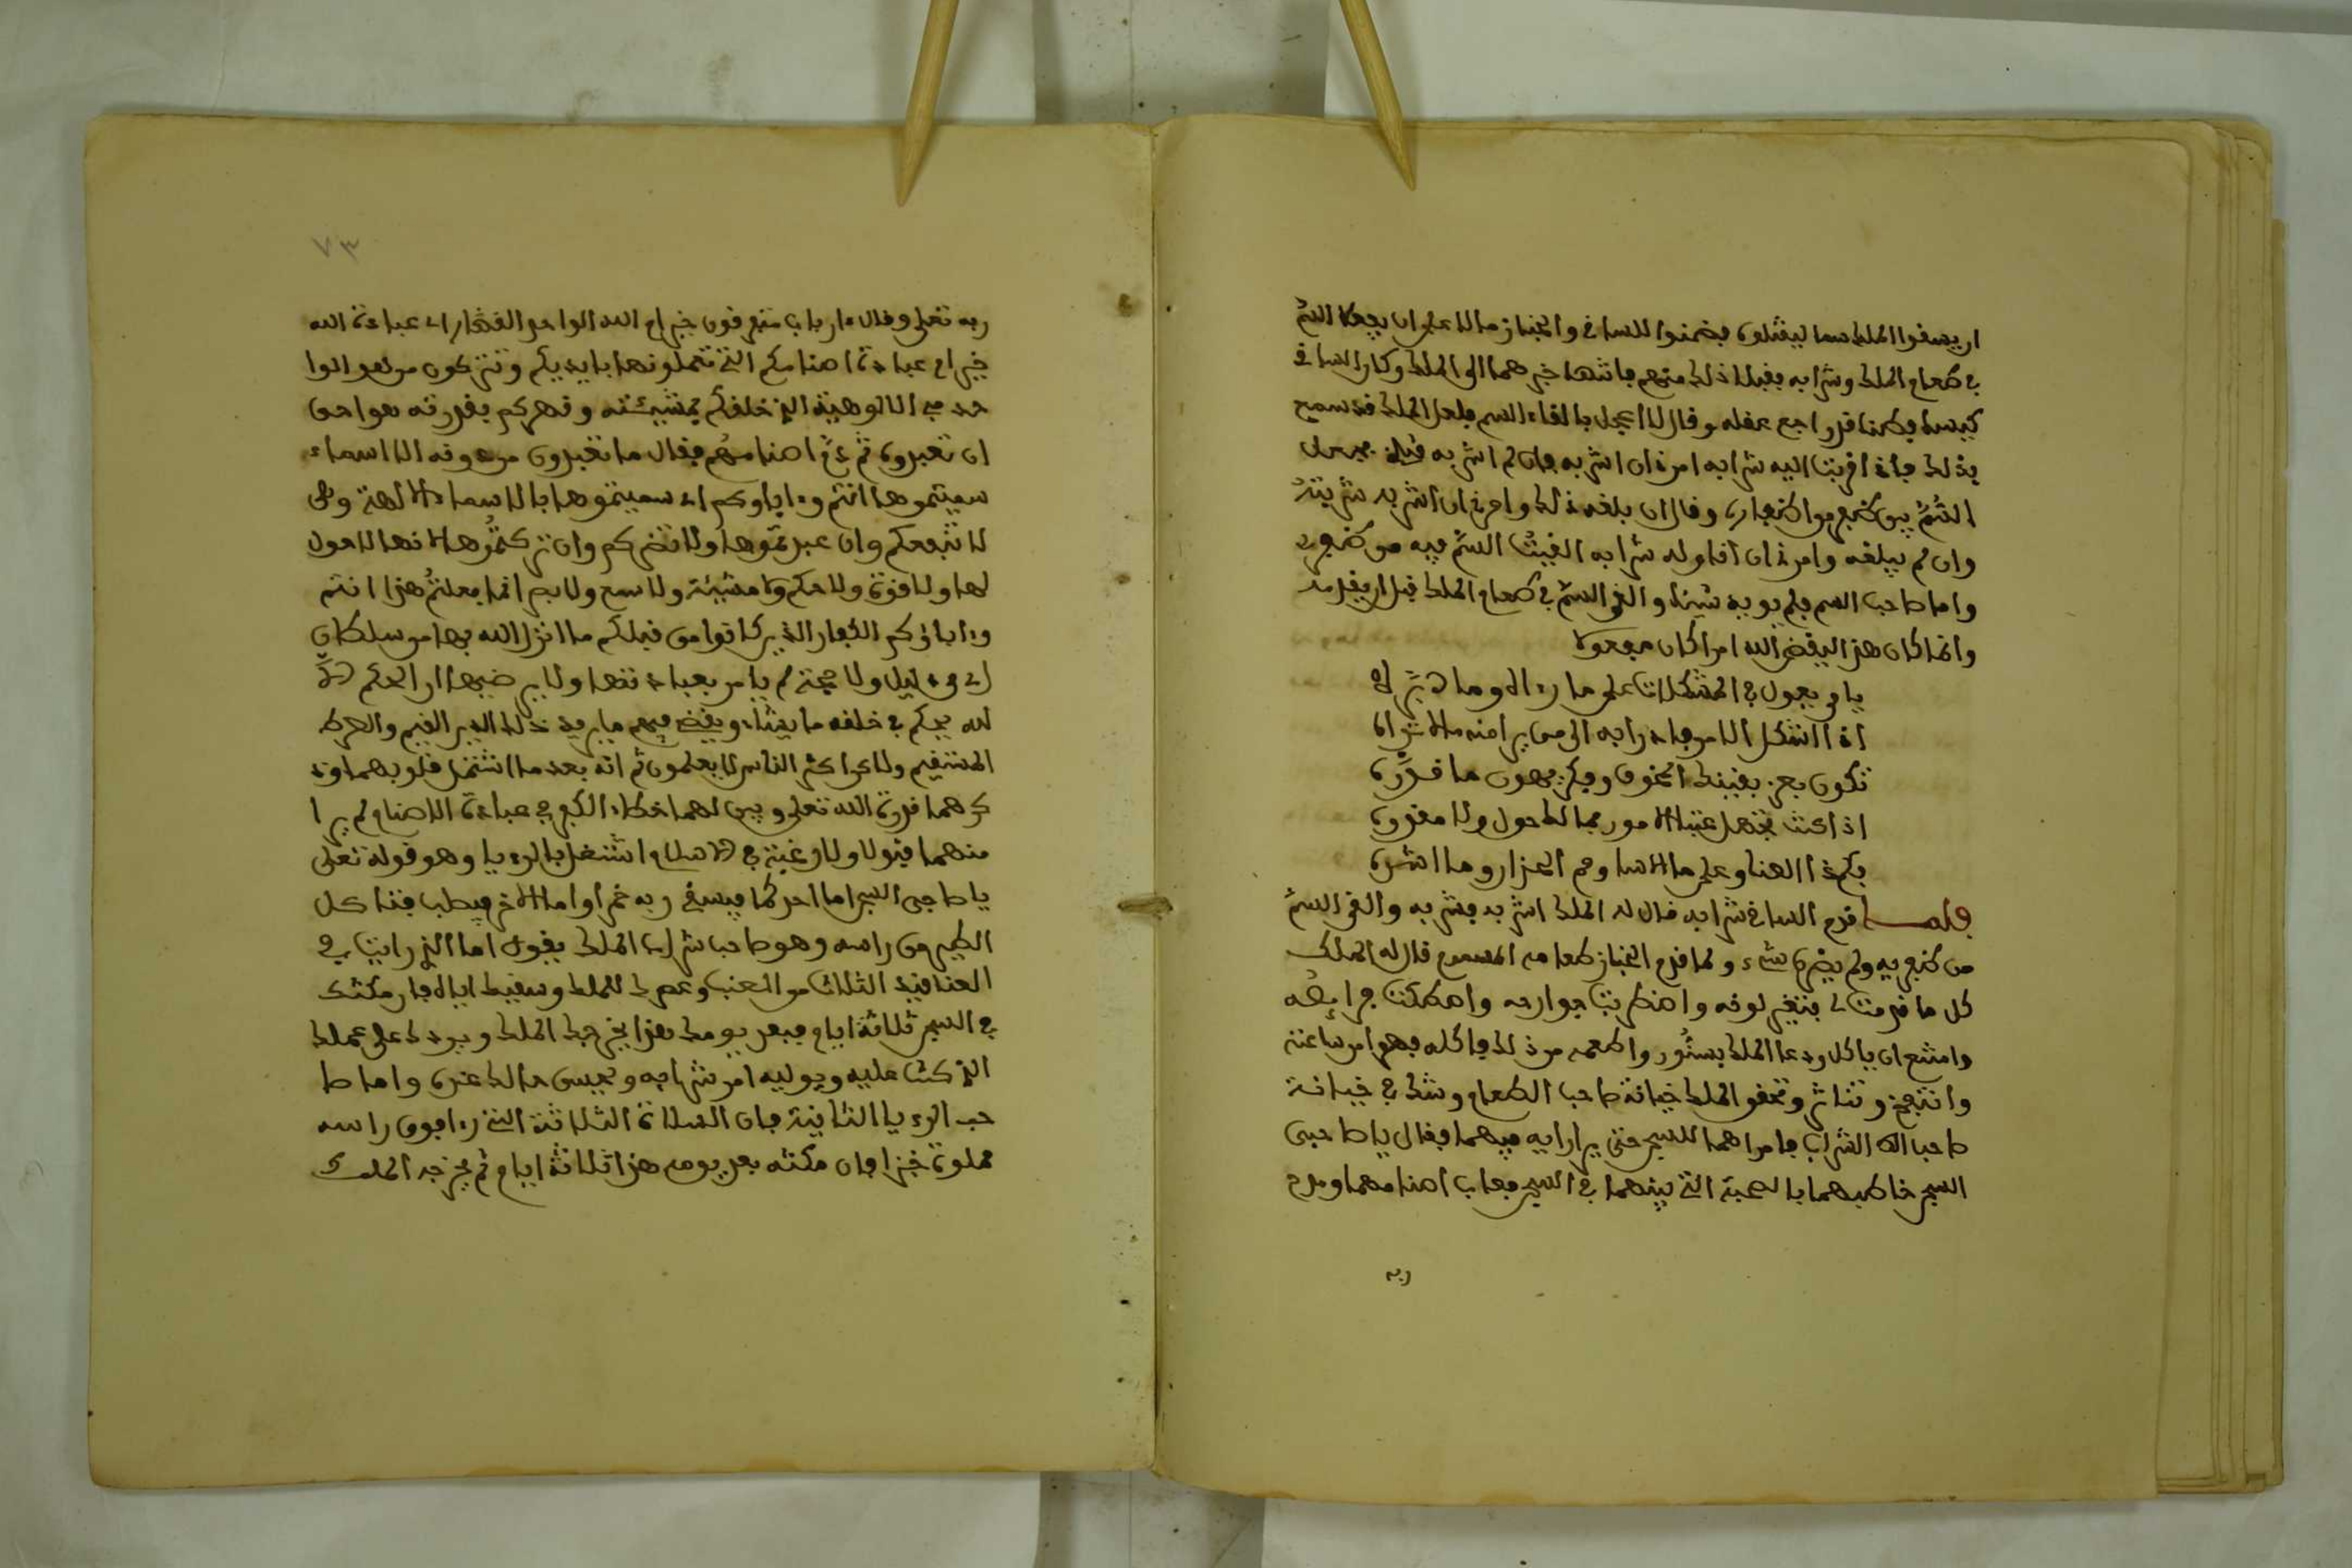 ان يسقوا الملك سما ليقتلوه بضمنوا للساقي والخباز مالا على ان يجعلا السم
في طعام الملك وشرابه فقبلا ذلك منهم فانتها خبرهما الى الملك وكان الساقي
كيسا فطنا فراجع عقله وقال لا اعجل بالقاء السم فلعل الملك قد سمع
بذلك فاذا قربت اليه شرابه امرني ان اشربه فان لم اشربه قتلني فجعل
السم بين ظفريه وقال ان بلغه ذلك وامرني ان اشربه شربته
وان لم يبلغه وامرني ان اناوله شرابه القيت السم فيه من ظفري
واما صاحب السم فلم يوبه شيئا والقى السم في طعام الملك قبل ان يقدمه
وانما كان هذا ليقضي الله امرا كان مفعولا
يا من يعول في المشكلات على ما رءاه وما دبره
اذا اشكل الامر فادرا به الى من يرا منه ما لا تراه
تكون بعز يقيك الخوف وفكر يهون ما قدره
اذا كنت تجهل عقبا الامور فما لك حول ولا مقدره
فلم ذا العنا وعلى ما الاسا ومم الحذار ومما الشره
فلما قدم الساقي شرابه قال له الملك اشربه فشربه والقى السم
من ظفريه ولم يضره شيء ولما قدم الخباز طعامه المسموم قال له الملك
كل ما قدمت لي فتغير لونه واضطربت جوارحه واصطكت فرايصه
وامتنع ان ياكل ودعا الملك بسنور واطعمه من ذلك فاكله فهوا من ساعته
وانتفخ وتناثر وتحقق الملك خيانة صاحب الطعام وشك في خيانة
صاحب الشراب فامر اهما للسجن حتى يرا رايه فيهما فقال يا صاحبي
السجن خاطبهما بالصحبة التي بينهما في السجن فعاب اصنامهما ومدح
ربه
٧٣
ربه تعلى وقال ءارباب متفرقون خير ام الله الواحد القهار اي عبادة الله
خير ام عبادة اصنامكم التي تعملونها بايديكم وتتركون من هو الوا
حد في الالوهية الذي خلقكم بمشيئته وقهركم بقدرته هو احق
ان تعبدوه ثم عم اصنامهم فقال ما تعبدون من دونه الا اسماء
سميتموها انتم وءاباوكم اي سميتموها بالاسماء الالهة وهي
لا تنفعكم وان عبدتموها ولا تضركم وان تركتموها لانها لا حول
لها ولا قوة ولا حكم ولا مشيئة ولا سمع ولا بصر انما فعلتم هذا انتم
وءاباؤكم الكفار الذين كانوا من قبلكم ما انزل الله بها من سلطان
اي من دليل ولا حجة لم يامر بعبادتها ولا يرضيها ان الحكم الا
لله يحكم في خلقه ما يشاء ويقضي فيهم ما يريد ذلك الدين القيم والصرط
المستقيم ولكن اكثر الناس لا يعلمون ثم انه بعد ما اشتغل قلوبهما وذ
كرهما قدرة الله تعلى وبين لهما خطاء الكفر في عبادة الاصنام لم يرا
منهما قبولا ولا رغبة في الاسلام اشتغل بالرءيا وهو قوله تعلى
يا صاحبي السجن اما احدكما فيسقي ربه خمرا واما الاخر فيصلب فتاكل
الطير من راسه وهو صاحب شراب الملك يقول اما الذي رايت في
العناقيد الثلاث من العنب وعصرك للملك وسقيك اياه فان مكثك
في السجن ثلاثة ايام فبعد يومك هذا يخرجك الملك ويردك على عملك
الذي كنت عليه ويوليه امر شرابه ويحسن حالك عنده واما صا
حب الرءيا الثانية فان السلاة الثلاثة التي رءا فوق راسه
مملوة خبزا فان مكثه بعد يومه هذا ثلاثة ايام ثم يخرجه الملك